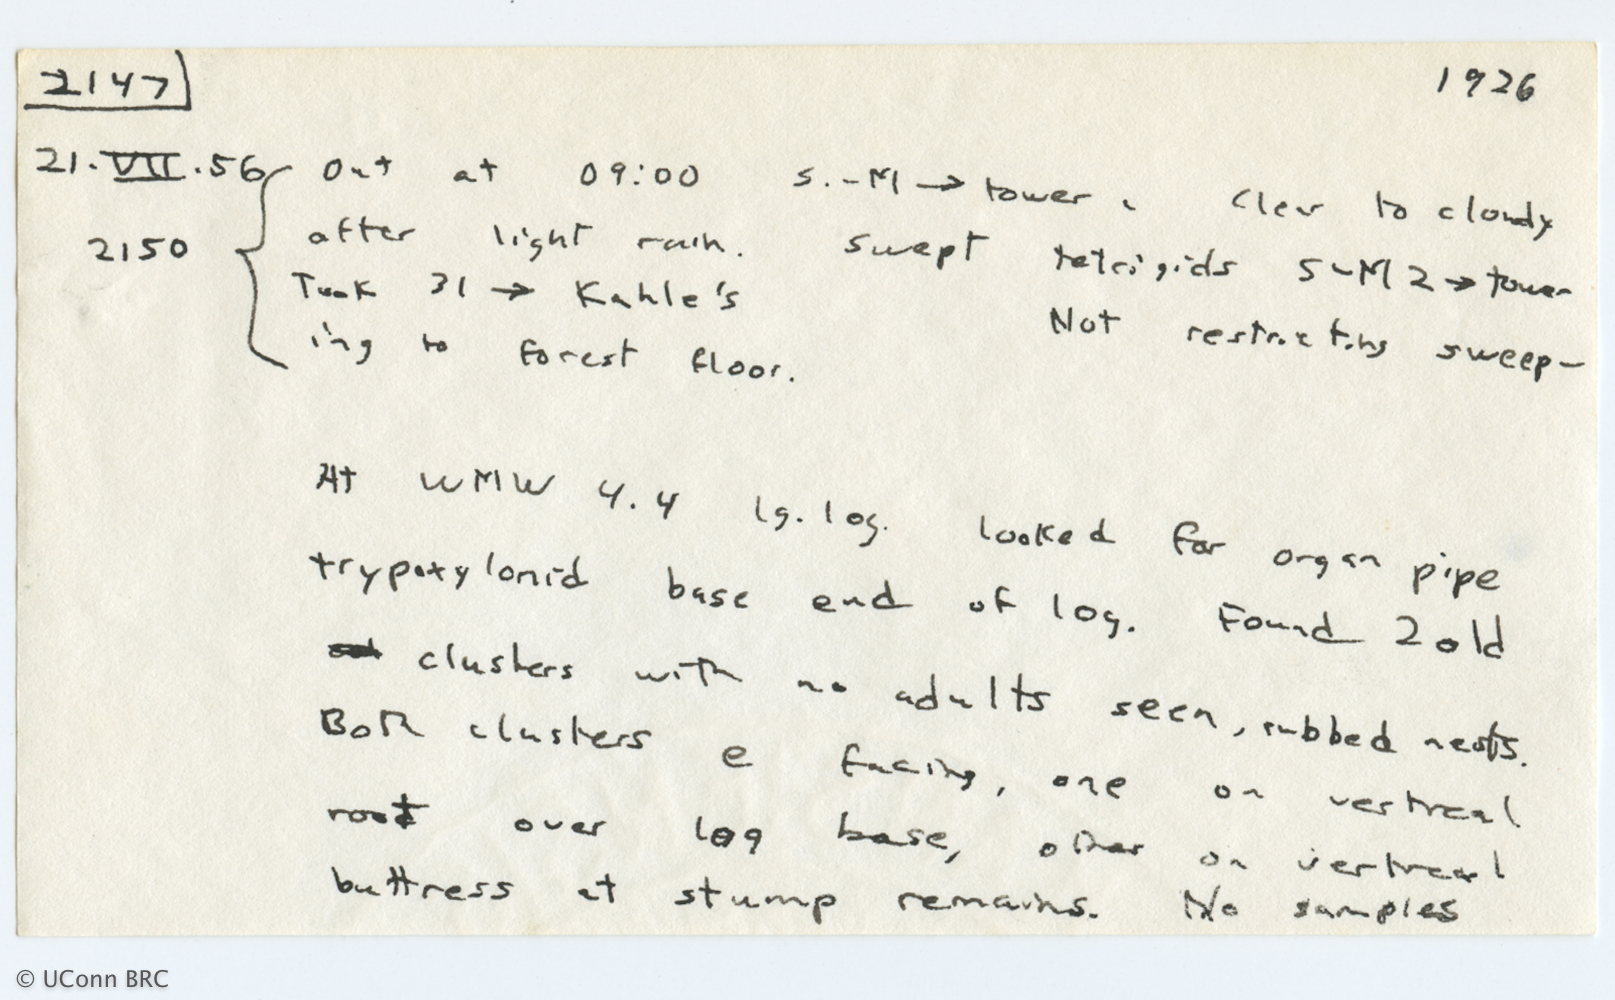 2147 1926
21.VII.56 Out at 09:00 S.-M → tower. Clear to cloudy
2150 after light rain. Swept tetrigids S-M2 → tower
Took 31 → Kahle's Not restricting sweep-
ing to forest floor.
At WMW 4.4 lg. log. looked for organ pipe
trypoxylonid base end of log. Found 2 old
clusters with no adults seen, rubbed nests.
Both clusters e facing, one on vertical
root over log base, other on vertical
buttress at stump remains. No samples
© UConn BRC